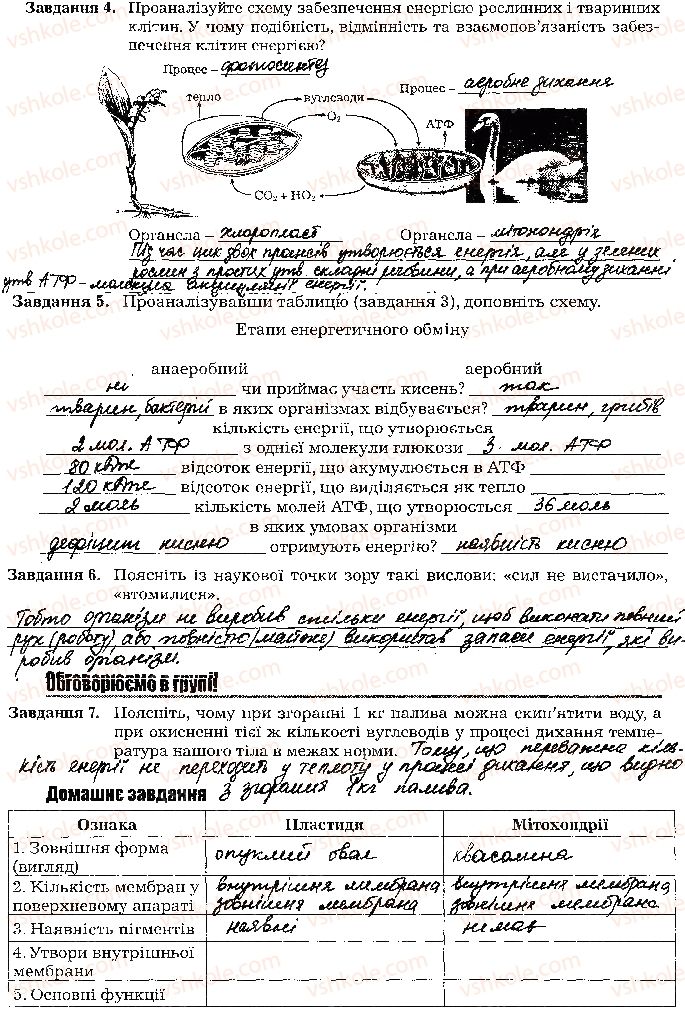 Завдання 4. Проаналізуйте схему забезпечення енергією рослинних і тваринних
клітин. У чому подібність, відмінність та взаємопов'язаність забез-
печення клітин енергією?
Процес – фотосинтез
Процес – аеробне дихання
тепло
вуглеводи
O₂
АТФ
CO₂ + HO₂
Органела – хлоропласт Органела – мітохондрія
Під час цих двох процесів утворюється енергія, але у зелених
рослин з простих утв. складні речовини, а при аеробному диханні
утв АТФ – молекула акумуляції енергії.
Завдання 5. Проаналізувавши таблицю (завдання 3), доповніть схему.
Етапи енергетичного обміну
анаеробний аеробний
ні чи приймає участь кисень? так
тварин, бактерій в яких організмах відбувається? тварин, грибів
кількість енергії, що утворюється
2 мол. АТФ з однієї молекули глюкози 3. мол. АТФ
80 кДж відсоток енергії, що акумулюється в АТФ
120 кДж відсоток енергії, що виділяється як тепло
2 моль кількість молей АТФ, що утворюється 36 моль
в яких умовах організми
дефіцит кисню отримують енергію? наявність кисню
Завдання 6. Поясніть із наукової точки зору такі вислови: «сил не вистачило»,
«втомилися».
Тобто організм не виробив стільки енергії, щоб виконати певний
рух (роботу), або повністю (майже) використав запаси енергії, які ви-
робив організм.
Обговорюємо в групі!
Завдання 7. Поясніть, чому при згоранні 1 кг палива можна скип'ятити воду, а
при окисненні тієї ж кількості вуглеводів у процесі дихання темпе-
ратура нашого тіла в межах норми. Тому, що переважна кіль-
кість енергії не переходить у теплоту у процесі дихання, що видно
Домашнє завдання з згорання 1 кг палива.
Ознака Пластиди Мітохондрії
1. Зовнішня форма
(вигляд) опуклий овал квасолина
2. Кількість мембран у внутрішня мембрана внутрішня мембрана
поверхневому апараті зовнішня мембрана зовнішня мембрана
3. Наявність пігментів наявні немає
4. Утвори внутрішньої
мембрани
5. Основні функції